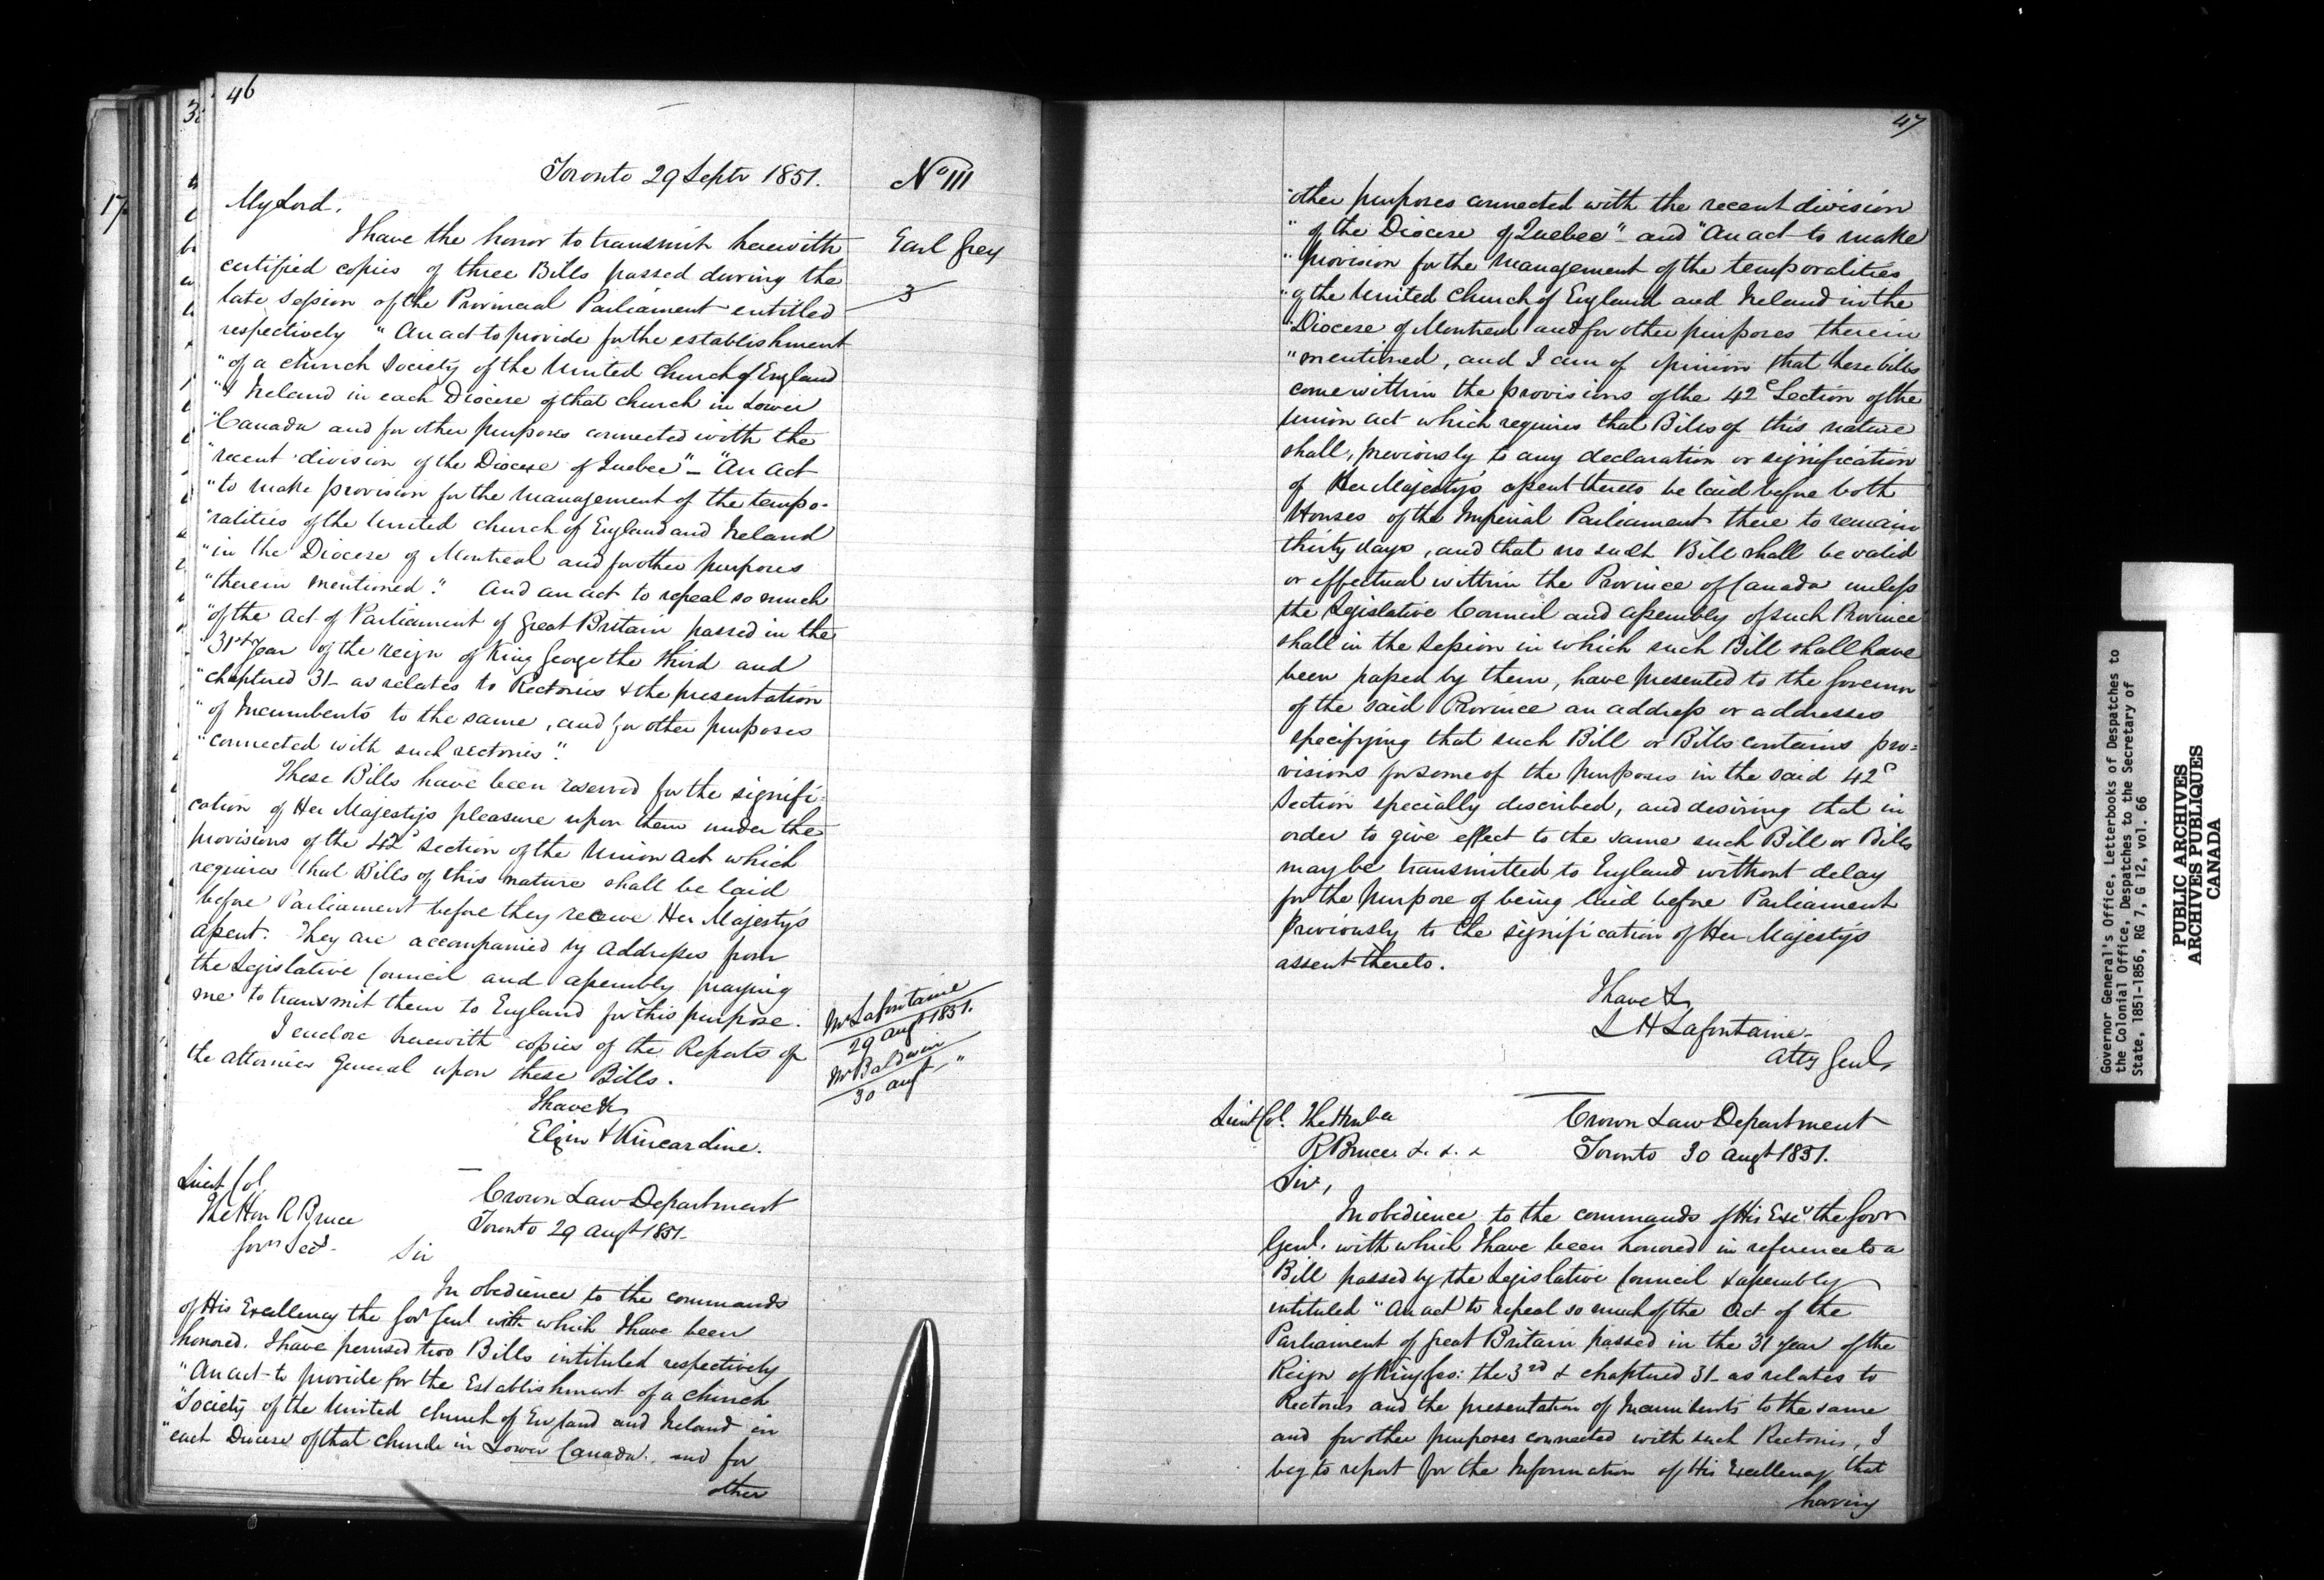 46
Toronto 29 Septr 1851.
No 111
My Lord,
Earl Grey
3
I have the honor to transmit herewith
certified copies of three Bills passed during the
late Session of the Provincial Parliament entitled
respectively "An act to provide for the establishment
"of a church Society of the United Church of England
"& Ireland in each Diocese of that church in Lower
"Canada and for other purposes connected with the
"recent division of the Diocese of Quebec" - "An Act
"to make provision for the management of the tempo-
"ralities of the United church of England and Ireland
"in the Diocese of Montreal and for other purposes
"therein mentioned." And an act to repeal so much
"of the Act of Parliament of Great Britain passed in the
"31st year of the reign of King George the third and
"chaptered 31 - as relates to Rectories & the presentation
"of Incumbents to the same, and for other purposes
"connected with such rectories".
These Bills have been reserved for the signifi-
cation of Her Majestys pleasure upon them under the
provisions of the 42d section of the Union Act which
requires that Bills of this nature shall be laid
before Parliament before they receive Her Majesty's
assent. They are accompanied by Addresses from
the Legislative Council and assembly praying
me to transmit them to England for this purpose.
I enclose herewith copies of the Reports of
the Attornies General upon these Bills.
Mr Lafontaine
29 Augt 1851.
Mr Baldwin
30 augt "
I have &c
Elgin & Kincardine.
Lieut Col
The Hon R Bruce
Govr Secy
Crown Law Department
Toronto 29 Augt 1851 -
Sir
In obedience to the commands
of His Excellency the Govr Genl with which I have been
honored. I have perused two Bills intituled respectively
"An act to provide for the Establishment of a church
"Society of the United Church of England and Ireland in
"each Diocese of that Church in Lower Canada, and for
other
47
"other purposes connected with the recent division
"of the Diocese of Quebec" - and "An act to make
"provision for the management of the temporalities
"of the United Church of England and Ireland in the
"Diocese of Montreal and for other purposes therein
"mentioned, and I am of opinion that these bills
come within the provisions of the 42d Section of the
Union Act which requires that Bills of this nature
shall, previously to any declaration or signification
of Her Majesty's assent thereto be laid before both
Houses of the Imperial Parliament there to remain
thirty days, and that no such Bill shall be valid
or effectual within the Province of Canada unless
the Legislative Council and assembly of such Province
shall in the Session in which such Bill shall have
been passed by them, have presented to the Governor
of the said Province an address or addresses
specifying that such Bill or Bills contains pro-
visions for some of the purposes in the said 42d
Section specially described, and desiring that in
order to give effect to the same such Bill or Bills
may be transmitted to England without delay
for the purpose of being laid before Parliament
previously to the signification of Her Majestys
assent thereto.
I have &c
L H Lafontaine -
Atty Genl
Lieut Col. The Honble
R Bruce &. &. &
Crown Law Department
Toronto 30 Augt 1851.
Sir,
In obedience to the commands of His Excy the Govr
Genl. with which I have been honored in reference to a
Bill passed by the Legislative Council & assembly
intituled "An act to repeal so much of the Act of the
Parliament of Great Britain passed in the 31 year of the
Reign of King Geo: the 3rd & chaptered 31 - as relates to
Rectories and the presentation of Incumbents to the same
and for other purposes connected with such Rectories, I
beg to report for the Information of His Excellency that
having
Governor General's Office, Letterbooks of Despatches to
the Colonial Office, Despatches to the Secretary of
State, 1851-1856, RG 7, G 12, vol. 66
PUBLIC ARCHIVES
ARCHIVES PUBLIQUES
CANADA